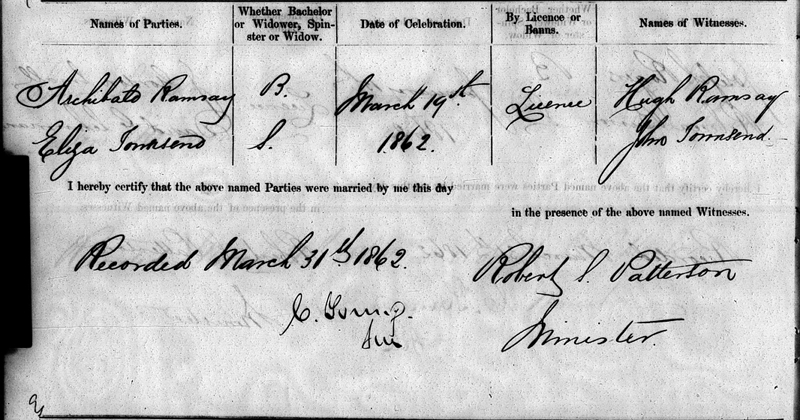 Names of Parties.
Whether Bachelor
or Widower, Spin-
ster or Widow.
Date of Celebration.
By Licence or
Banns.
Names of Witnesses.
Archibald Ramsay B. March 19th Licence Hugh Ramsay
Eliza Townsend S. 1862. Jno Townsend.
I hereby certify that the above named Parties were married by me this day
in the presence of the above named Witnesses.
Recorded March 31st 1862.
Robert S. Patterson
C. Young.
Minister.